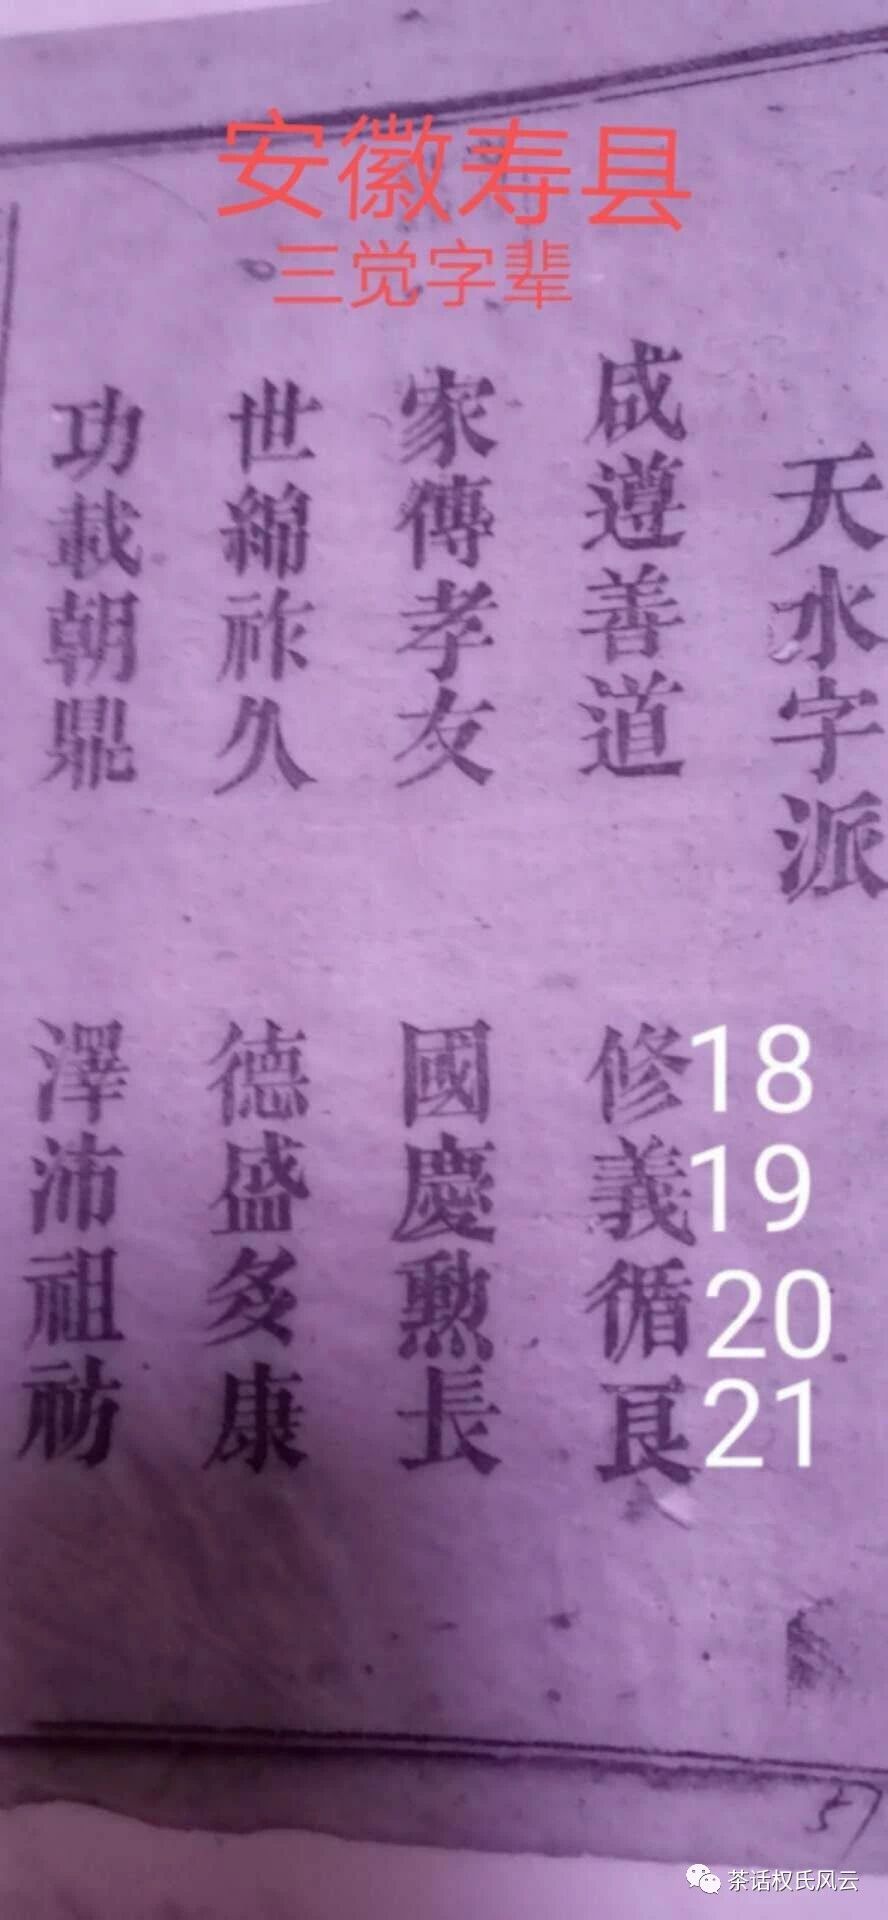 安徽寿县
三觉字辈
天水字派
咸遵善道
修義循良
18
19
20
21
家傳孝友
國慶勲長
世綿祚久
德盛多康
功載朝鼎
澤沛祖祊
57
茶话权氏风云